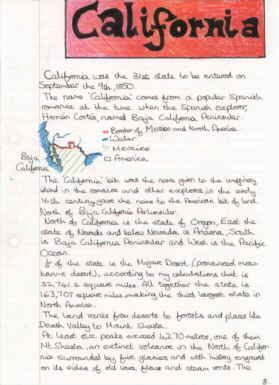 California
California was the 31st state to be entered on
September the 9th, 1850.
The name 'California' comes from a popular Spanish
romance at the time when the Spanish explorer,
Hernán Cortés, named Baja California Peninsular.
Border of Mexico and North America
Water
Mexico
America
Baja
California
The 'California' bit was the name given to the imaginary
island in the romance and other explorers in the early
16th century gave the name to the American bit of land
North of Baja California Peninsular.
North of California is the state of Oregon, East the
state of Nevada and below Nevada is Arizona, South
is Baja California Peninsular and West is the Pacific
Ocean.
of the state is the Mojave Desert, (pronounced
desert), according to my calculations that is
32,741.2 square miles. All together the state is
163,707 square miles making the third largest state in
North America.
The land varies from deserts to forests and places like
Death Valley to Mount Shasta.
At least six peaks exceed 4,270 metres, one of them
Mt Shasta, an extinct volcano in the North of Califor-
nia surrounded by five glaciers and with history engraved
on its sides of old lava flows and steam vents. The